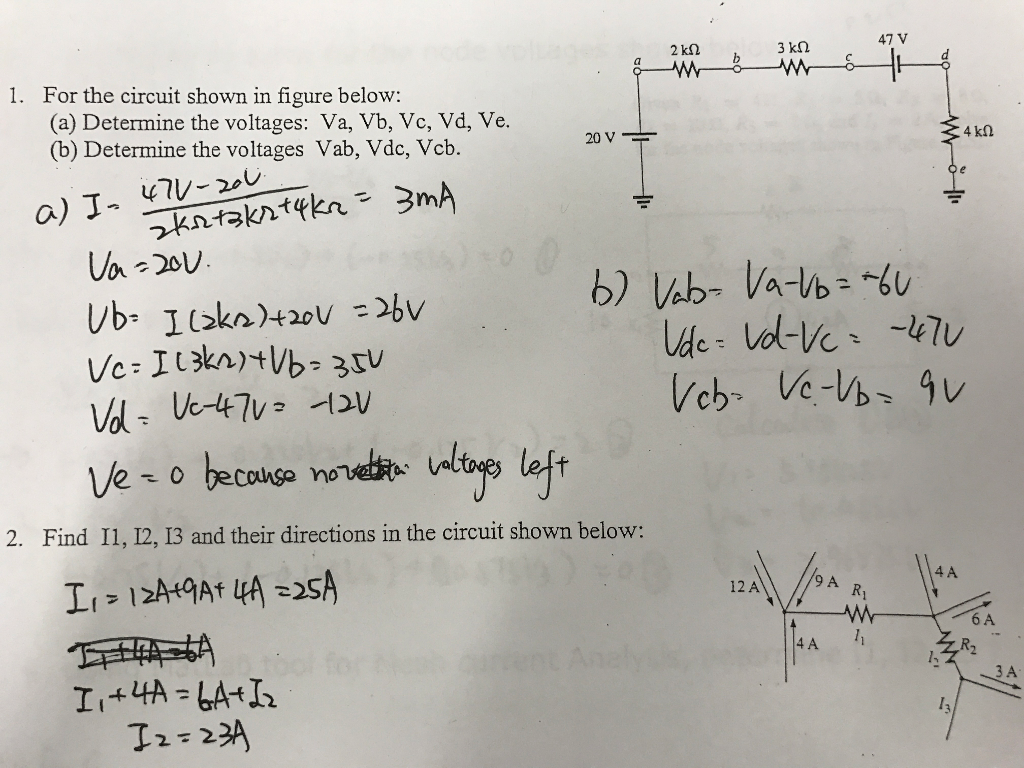 1. For the circuit shown in figure below:
(a) Determine the voltages: Va, Vb, Vc, Vd, Ve.
(b) Determine the voltages Vab, Vdc, Vcb.
a 2 kΩ b 3 kΩ c 47 V d
20 V
4 kΩ
e
a) I = 47V-20V / 2kΩ+3kΩ+4kΩ = 3mA
Va = 20V.
Vb = I(2kΩ)+20V = 26V
Vc = I(3kΩ)+Vb = 35V
Vd = Vc-47V = -12V
Ve = 0 because no voltages left
b) Vab = Va-Vb = -6V
Vdc = Vd-Vc = -47V
Vcb = Vc-Vb = 9V
2. Find I1, I2, I3 and their directions in the circuit shown below:
I1 = 12A+9A+4A = 25A
I1+4A=6A
I1+4A = 6A+I2
I2 = 23A
12 A
9 A
R1
I1
4 A
4 A
6 A
R2
I2
3 A
I3